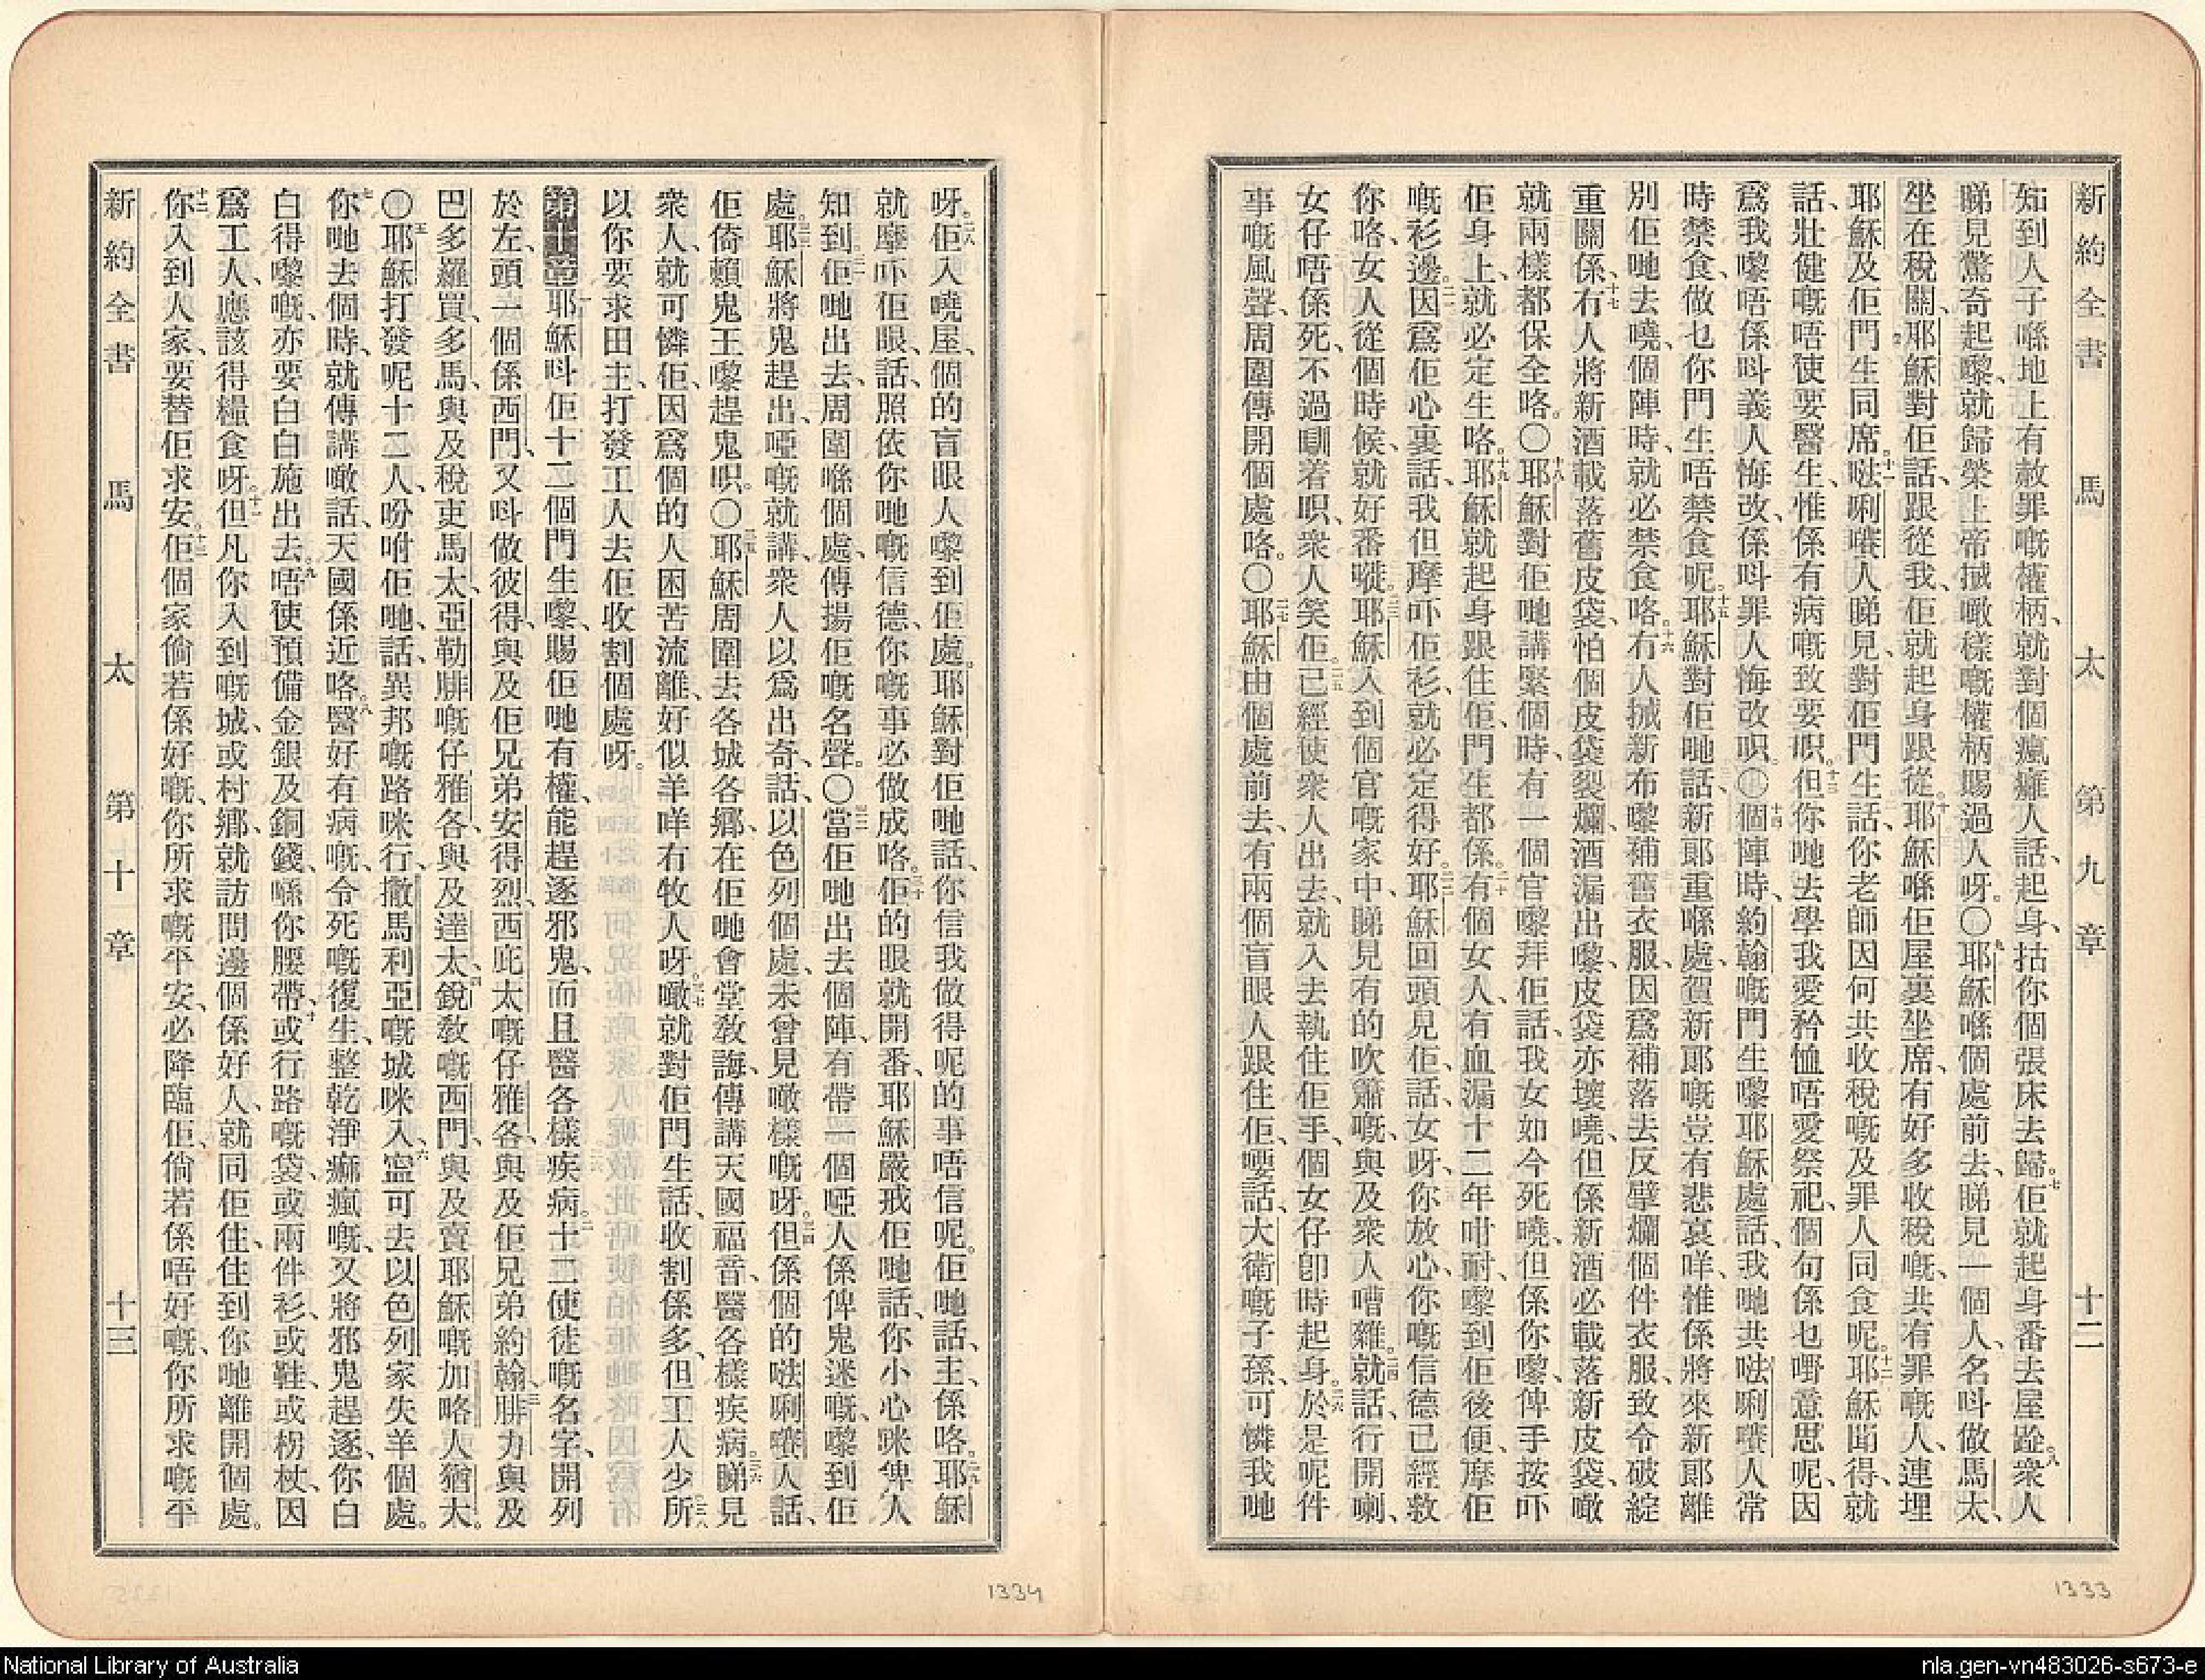 新約全書 馬太 第九章 十二
知到人子喺地上有赦罪嘅權柄、就對個瘋癱人話、起身、拈你個張床去歸。七佢就起身番去屋跲。八衆人
睇見驚奇起嚟、就歸榮上帝、搣噉樣嘅權柄賜過人呀。〇九耶穌喺個處前去、睇見一個人、名呌做馬太、
坐在稅關、耶穌對佢話、跟從我、佢就起身跟從。十耶穌喺佢屋裏坐席、有好多收稅嘅、共有罪嘅人、連埋
耶穌及佢門生同席。十一𠵽唎㘔人睇見、對佢門生話、你老師因何共收稅嘅及罪人同食呢。十二耶穌聞得、就
話、壯健嘅唔使要醫生、惟係有病嘅致要呮。十三但你哋去學我愛矜恤唔愛祭祀、個句係乜嘢意思呢、因
爲我嚟唔係呌義人悔改、係呌罪人悔改呮。〇十四個陣時、約翰嘅門生嚟耶穌處話、我哋共𠵽唎㘔人常
時禁食、做乜你門生唔禁食呢。十五耶穌對佢哋話、新郞重喺處、賀新郞嘅豈有悲哀咩、惟係將來新郞離
別佢哋去嘵、個陣時、就必禁食咯。十六冇人搣新布嚟補舊衣服、因爲補落去反擘爛個件衣服、致令破綻
重關係。十七冇人將新酒載落舊皮袋、怕個皮袋裂爛、酒漏出嚟、皮袋亦壞嘵、但係新酒必載落新皮袋、噉
就兩樣都保全咯。〇十八耶穌對佢哋講緊個時、有一個官嚟拜佢話、我女如今死嘵、但係你嚟、俾手按吓
佢身上、就必定生咯。十九耶穌就起身跟住佢、門生都係。二十有個女人、有血漏十二年咁耐、嚟到佢後便、摩佢
嘅衫邊。二一因爲佢心裏話、我但摩吓佢衫、就必定得好。二二耶穌回頭見佢、話、女呀、你放心、你嘅信德已經救
你咯、女人從個時候、就好番嘥。二三耶穌入到個官嘅家中、睇見有的吹簫嘅、與及衆人嘈雜。二四就話、行開喇、
女仔唔係死、不過瞓着呮、衆人笑佢。二五已經使衆人出去、就入去執住佢手、個女仔卽時起身。二六於是呢件
事嘅風聲、周圍傳開個處咯。〇二七耶穌由個處前去、有兩個盲眼人跟住佢、嗌話、大衛嘅子孫、可憐我哋
呀。二八佢入嘵屋、個的盲眼人嚟到佢處。耶穌對佢哋話、你信我做得呢的事唔信呢。佢哋話、主、係咯。二九耶穌
就摩吓佢眼、話、照依你哋嘅信德、你嘅事必做成咯。三十佢的眼就開番、耶穌嚴戒佢哋話、你小心咪俾人
知到。三一佢哋出去、周圍喺個處、傳揚佢嘅名聲。〇三二當佢哋出去個陣、有帶一個啞人係俾鬼迷嘅、嚟到佢
處。三三耶穌將鬼趕出、啞嘅就講、衆人以爲出奇、話、以色列個處、未曾見噉樣嘅呀。三四但係個的𠵽唎㘔人話、
佢倚賴鬼王嚟趕鬼呮。〇三五耶穌周圍去各城各鄉、在佢哋會堂敎誨、傳講天國福音、醫各樣疾病。三六睇見
衆人、就可憐佢、因爲個的人困苦流離、好似羊咩冇牧人呀。三七噉就對佢門生話、收割係多、但工人少。三八所
以你要求田主、打發工人去佢收割個處呀。
第十章 一耶穌呌佢十二個門生嚟、賜佢哋有權、能趕逐邪鬼、而且醫各樣疾病。二十二使徒嘅名字、開列
於左、頭一個係西門、又呌做彼得、與及佢兄弟安得烈、西庇太嘅仔雅各、與及佢兄弟約翰、三腓力與及
巴多羅買、多馬、與及稅吏馬太、亞勒腓嘅仔雅各、與及達太、四銳敎嘅西門、與及賣耶穌嘅加略人猶大。
〇五耶穌打發呢十二人、吩咐佢哋、話、異邦嘅路咪行、撒馬利亞嘅城咪入、六寍可去以色列家失羊個處。
七你哋去個時、就傳講噉話、天國係近咯。八醫好有病嘅、令死嘅復生、整乾淨痲瘋嘅、又將邪鬼趕逐、你白
白得嚟嘅、亦要白白施出去。九唔使預備金銀及銅錢、喺你腰帶、十或行路嘅袋、或兩件衫、或鞋、或枴杖、因
爲工人、應該得糧食呀。十一但凡你入到嘅城、或村鄉、就訪問邊個係好人、就同佢住、住到你哋離開個處。
十二你入到人家、要替佢求安。十三佢個家倘若係好嘅、你所求嘅平安、必降臨佢、倘若係唔好嘅、你所求嘅平
新約全書 馬太 第十章 十三
1334
1333
National Library of Australia
nla.gen-vn483026-s673-e